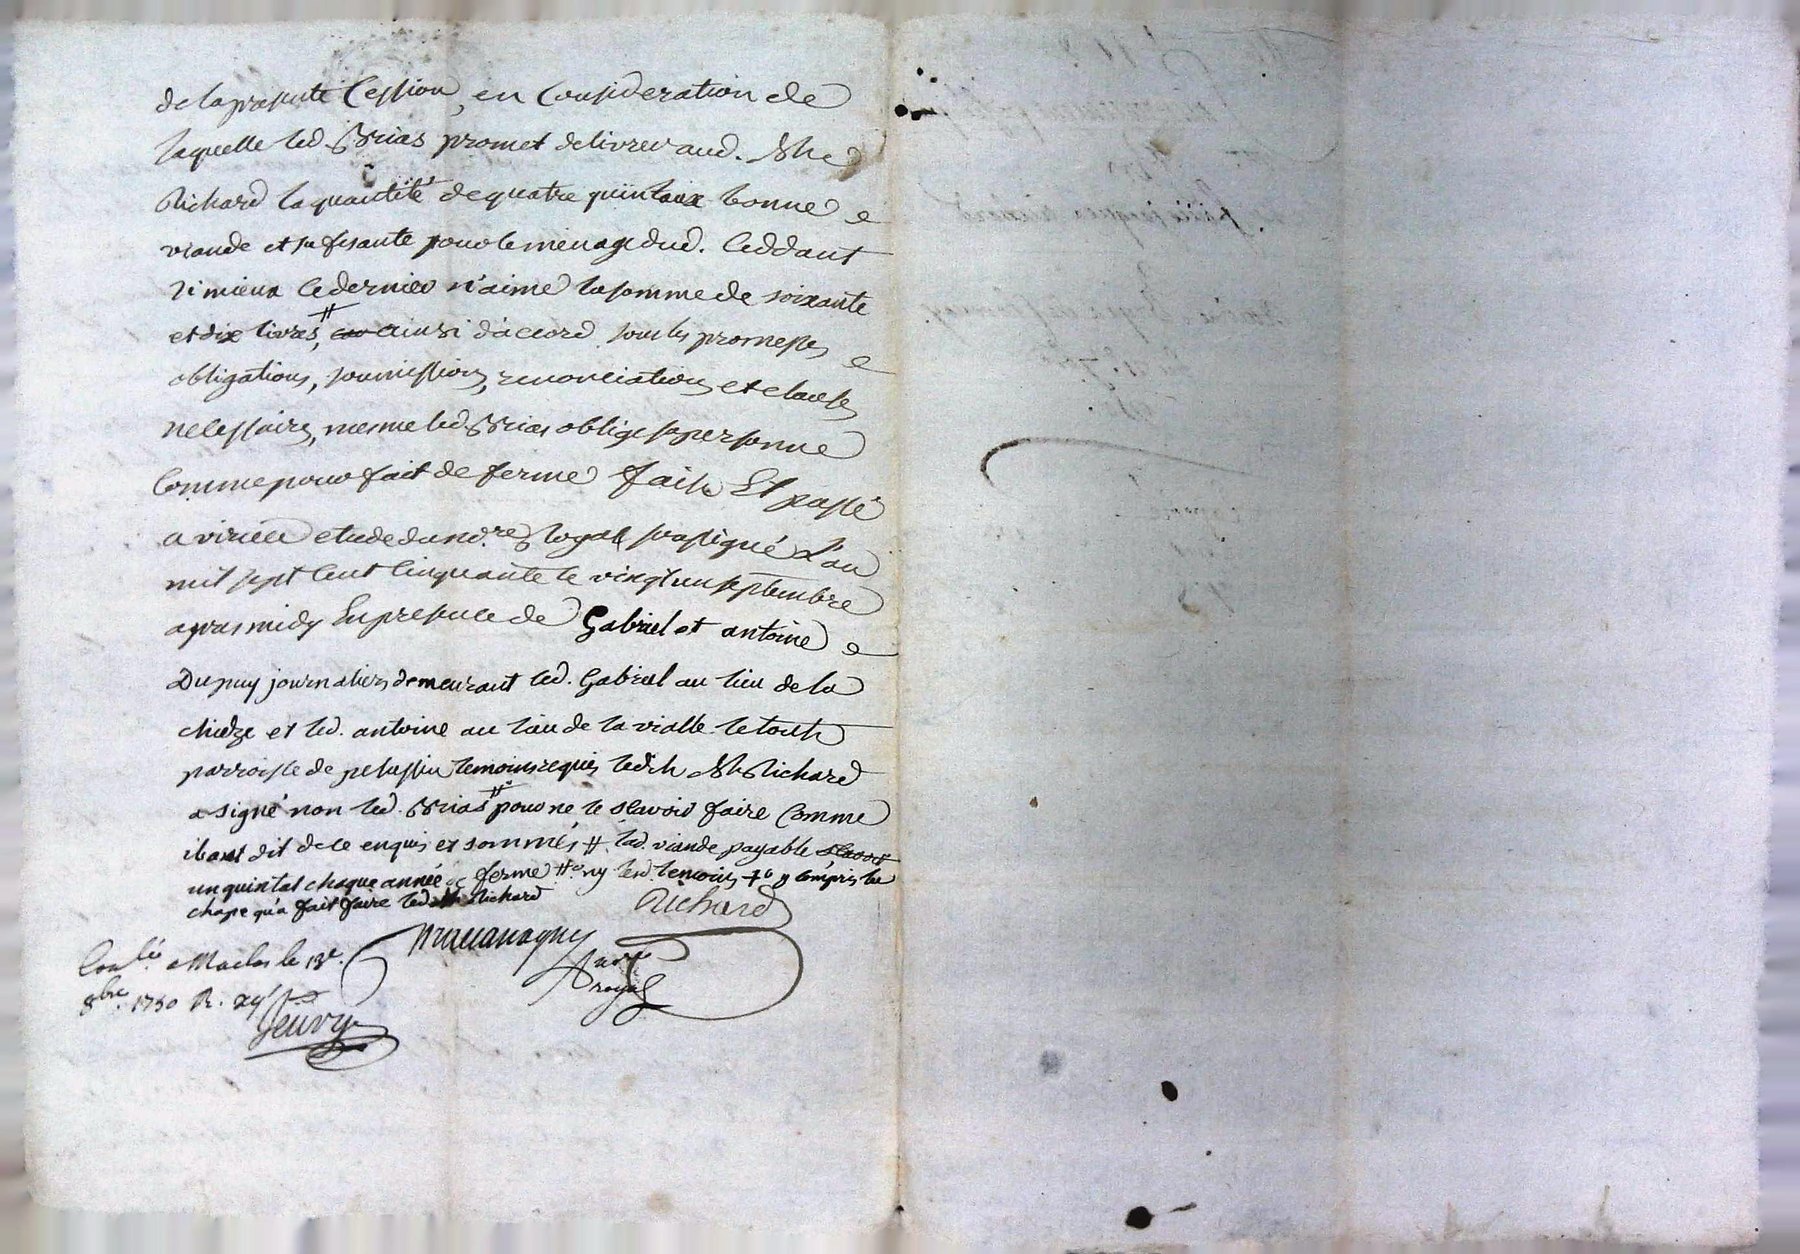 de la presente Cession, en Consideration de
laquelle led. Brias promet delivrer aud. Sr
Richard la quantité de quatre quintaux bonne
viande et sufisante pour le ménage dud. Ceddant
si mieux ce dernier n'aime la somme de soixante
et dix livres, # ainsi d'accord sous les promesses
obligations, soumissions, renonciations et clauses
necessaires, mesme led. Brias oblige sa personne
Comme pour fait de ferme fait Et passé
a virieu etude du no.re royal soussigné L'an
mil sept Cent Cinquante le vingt un septembre
apres midy En presence de Gabriel et antoine
Dupuy journaliers demeurant led. Gabriel au lieu de la
chieze et led. antoine au lieu de la vialle le tout
parroisse de pelussin temoins requis ledit Sr Richard
a signé non led. Brias # pour ne le scavoir faire Comme
ils ont dit de ce enquis et sommés # lad. viande payable
un quintal chaque année de ferme # ny lesd. temoins + y Compris la
chape qu'a fait faire led. Sr Richard
Richard
no.re
royal
Con.lé a Maclas le 13e.
8bre. 1750 R.